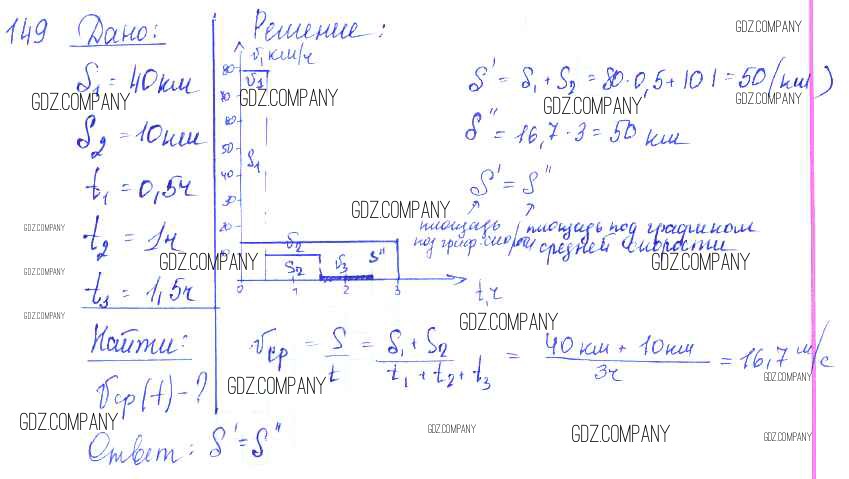 149 Дано:
S₁ = 40 км
S₂ = 10 км
t₁ = 0,5 ч
t₂ = 1 ч
t₃ = 1,5 ч
Найти:
Vср(t) - ?
Решение:
V, км/ч
80
70
60
50
40
30
20
10
0
1
2
3
t, ч
V₁
S₁
V₂
S₂
V₃
S"
S' = S₁ + S₂ = 80 · 0,5 + 10 · 1 = 50 (км)
S" = 16,7 · 3 = 50 км
S' = S"
площадь под граф. скорости
площадь под графиком средней скорости
Vср = S/t = (S₁ + S₂)/(t₁ + t₂ + t₃) = (40 км + 10 км)/3ч = 16,7 м/с
Ответ: S' = S"
GDZ.COMPANY
GDZ.COMPANY
GDZ.COMPANY
GDZ.COMPANY
GDZ.COMPANY
GDZ.COMPANY
GDZ.COMPANY
GDZ.COMPANY
GDZ.COMPANY
GDZ.COMPANY
GDZ.COMPANY
GDZ.COMPANY
GDZ.COMPANY
GDZ.COMPANY
GDZ.COMPANY
GDZ.COMPANY
GDZ.COMPANY
GDZ.COMPANY
GDZ.COMPANY